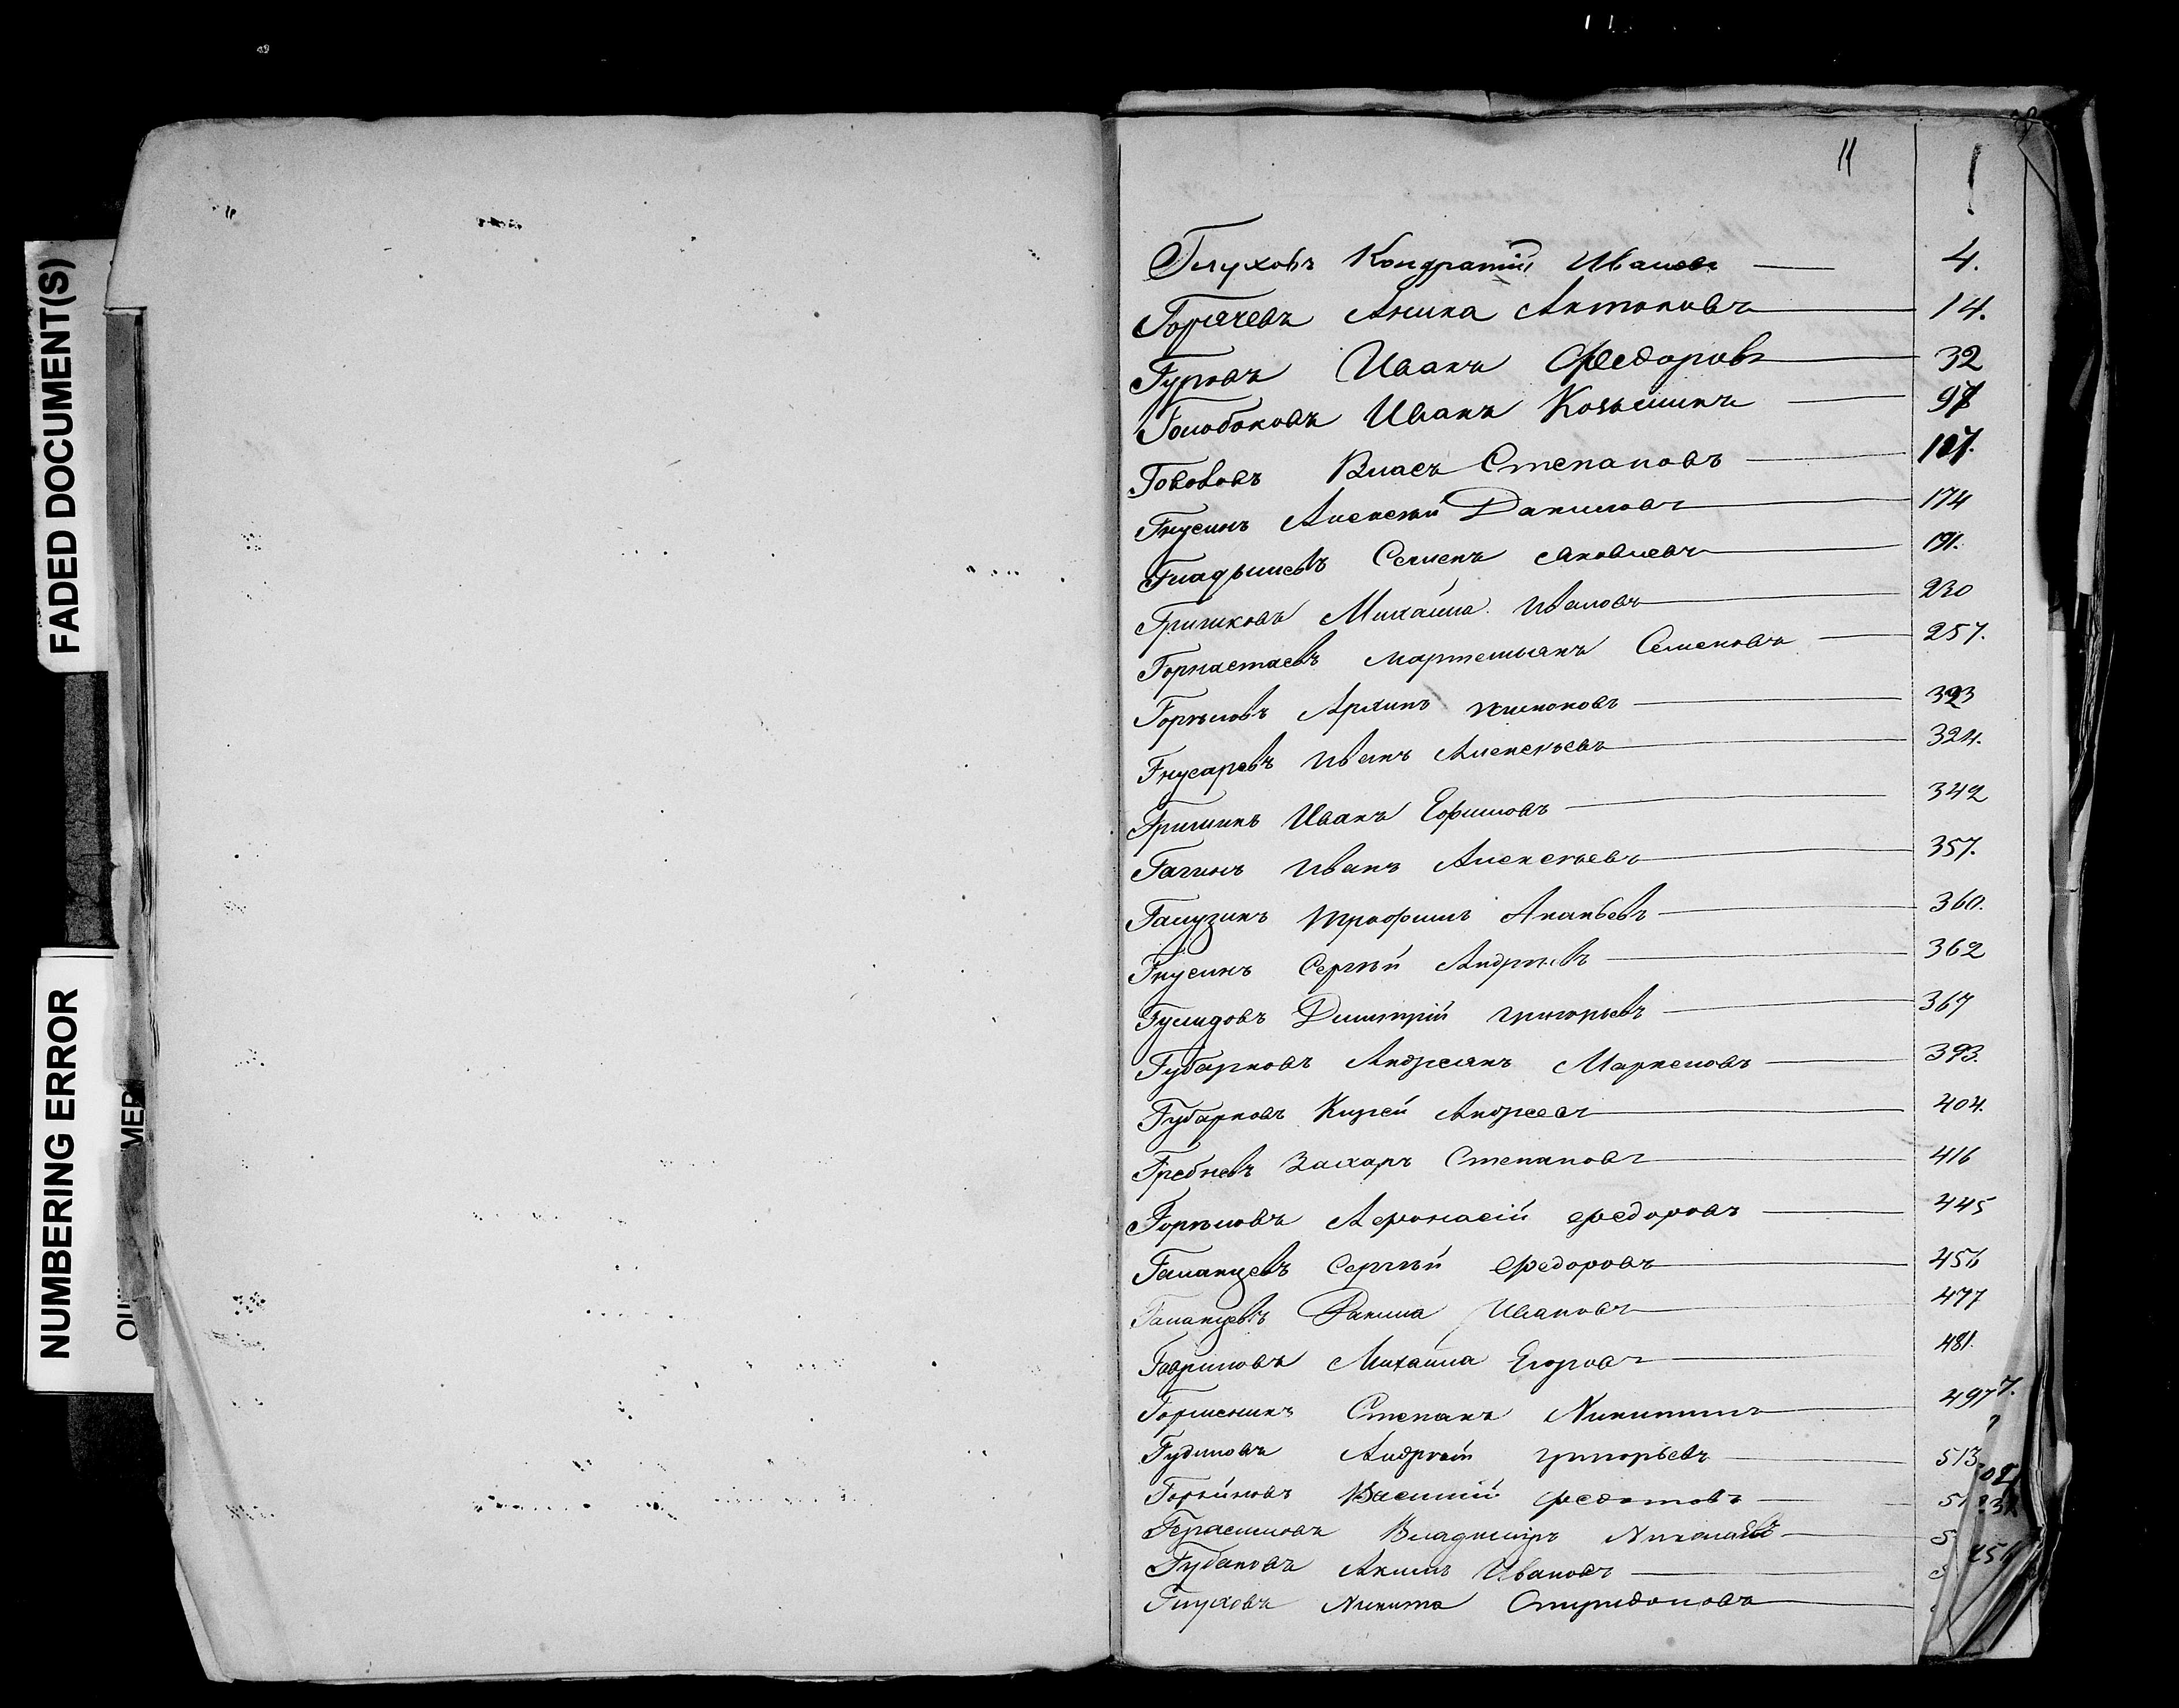 11
Глуховъ Кондратій Ивановъ 4.
Горячевъ Аника Антоновъ 14.
Гуровъ Иванъ Федоровъ 32
Голобоковъ Иванъ Козьминъ
Говоловъ Власъ Степановъ 107.
Гнусинъ Алексѣй Даниловъ 174
Гладышевъ Семенъ Яковлевъ 191.
Гришковъ Михайла Ивановъ 230
Горностаевъ Мартемьянъ Семеновъ 257.
Горѣловъ Архипъ
Гнусаревъ Иванъ Алексѣевъ 324.
Гришинъ Иванъ Ефимовъ 342
Гагинъ Иванъ Алексѣевъ 357.
Галузинъ Трофимъ Ананьевъ 360.
Гнусинъ Сергѣй Андрѣевъ 362
Гулидовъ Димитрій Григорьевъ 367
Губарковъ Андреянъ Маркеловъ 393.
Губарковъ Кирей Андреевъ 404.
Гребневъ Захаръ Степановъ 416
Горѣловъ Афонасій Федоровъ 445
Галанцевъ Сергѣй Федоровъ 456
Галанцевъ Данила Ивановъ 477
Гавриловъ Михайла Егоровъ 481.
Горшенинъ Степанъ Никитинъ 497
Гудиловъ Андрей Григорьевъ 513
Василій Федотовъ
Герасимовъ Владиміръ Николаевъ
Губановъ Акимъ Ивановъ
Глуховъ Никита Спиридоновъ
FADED DOCUMENT(S)
NUMBERING ERROR